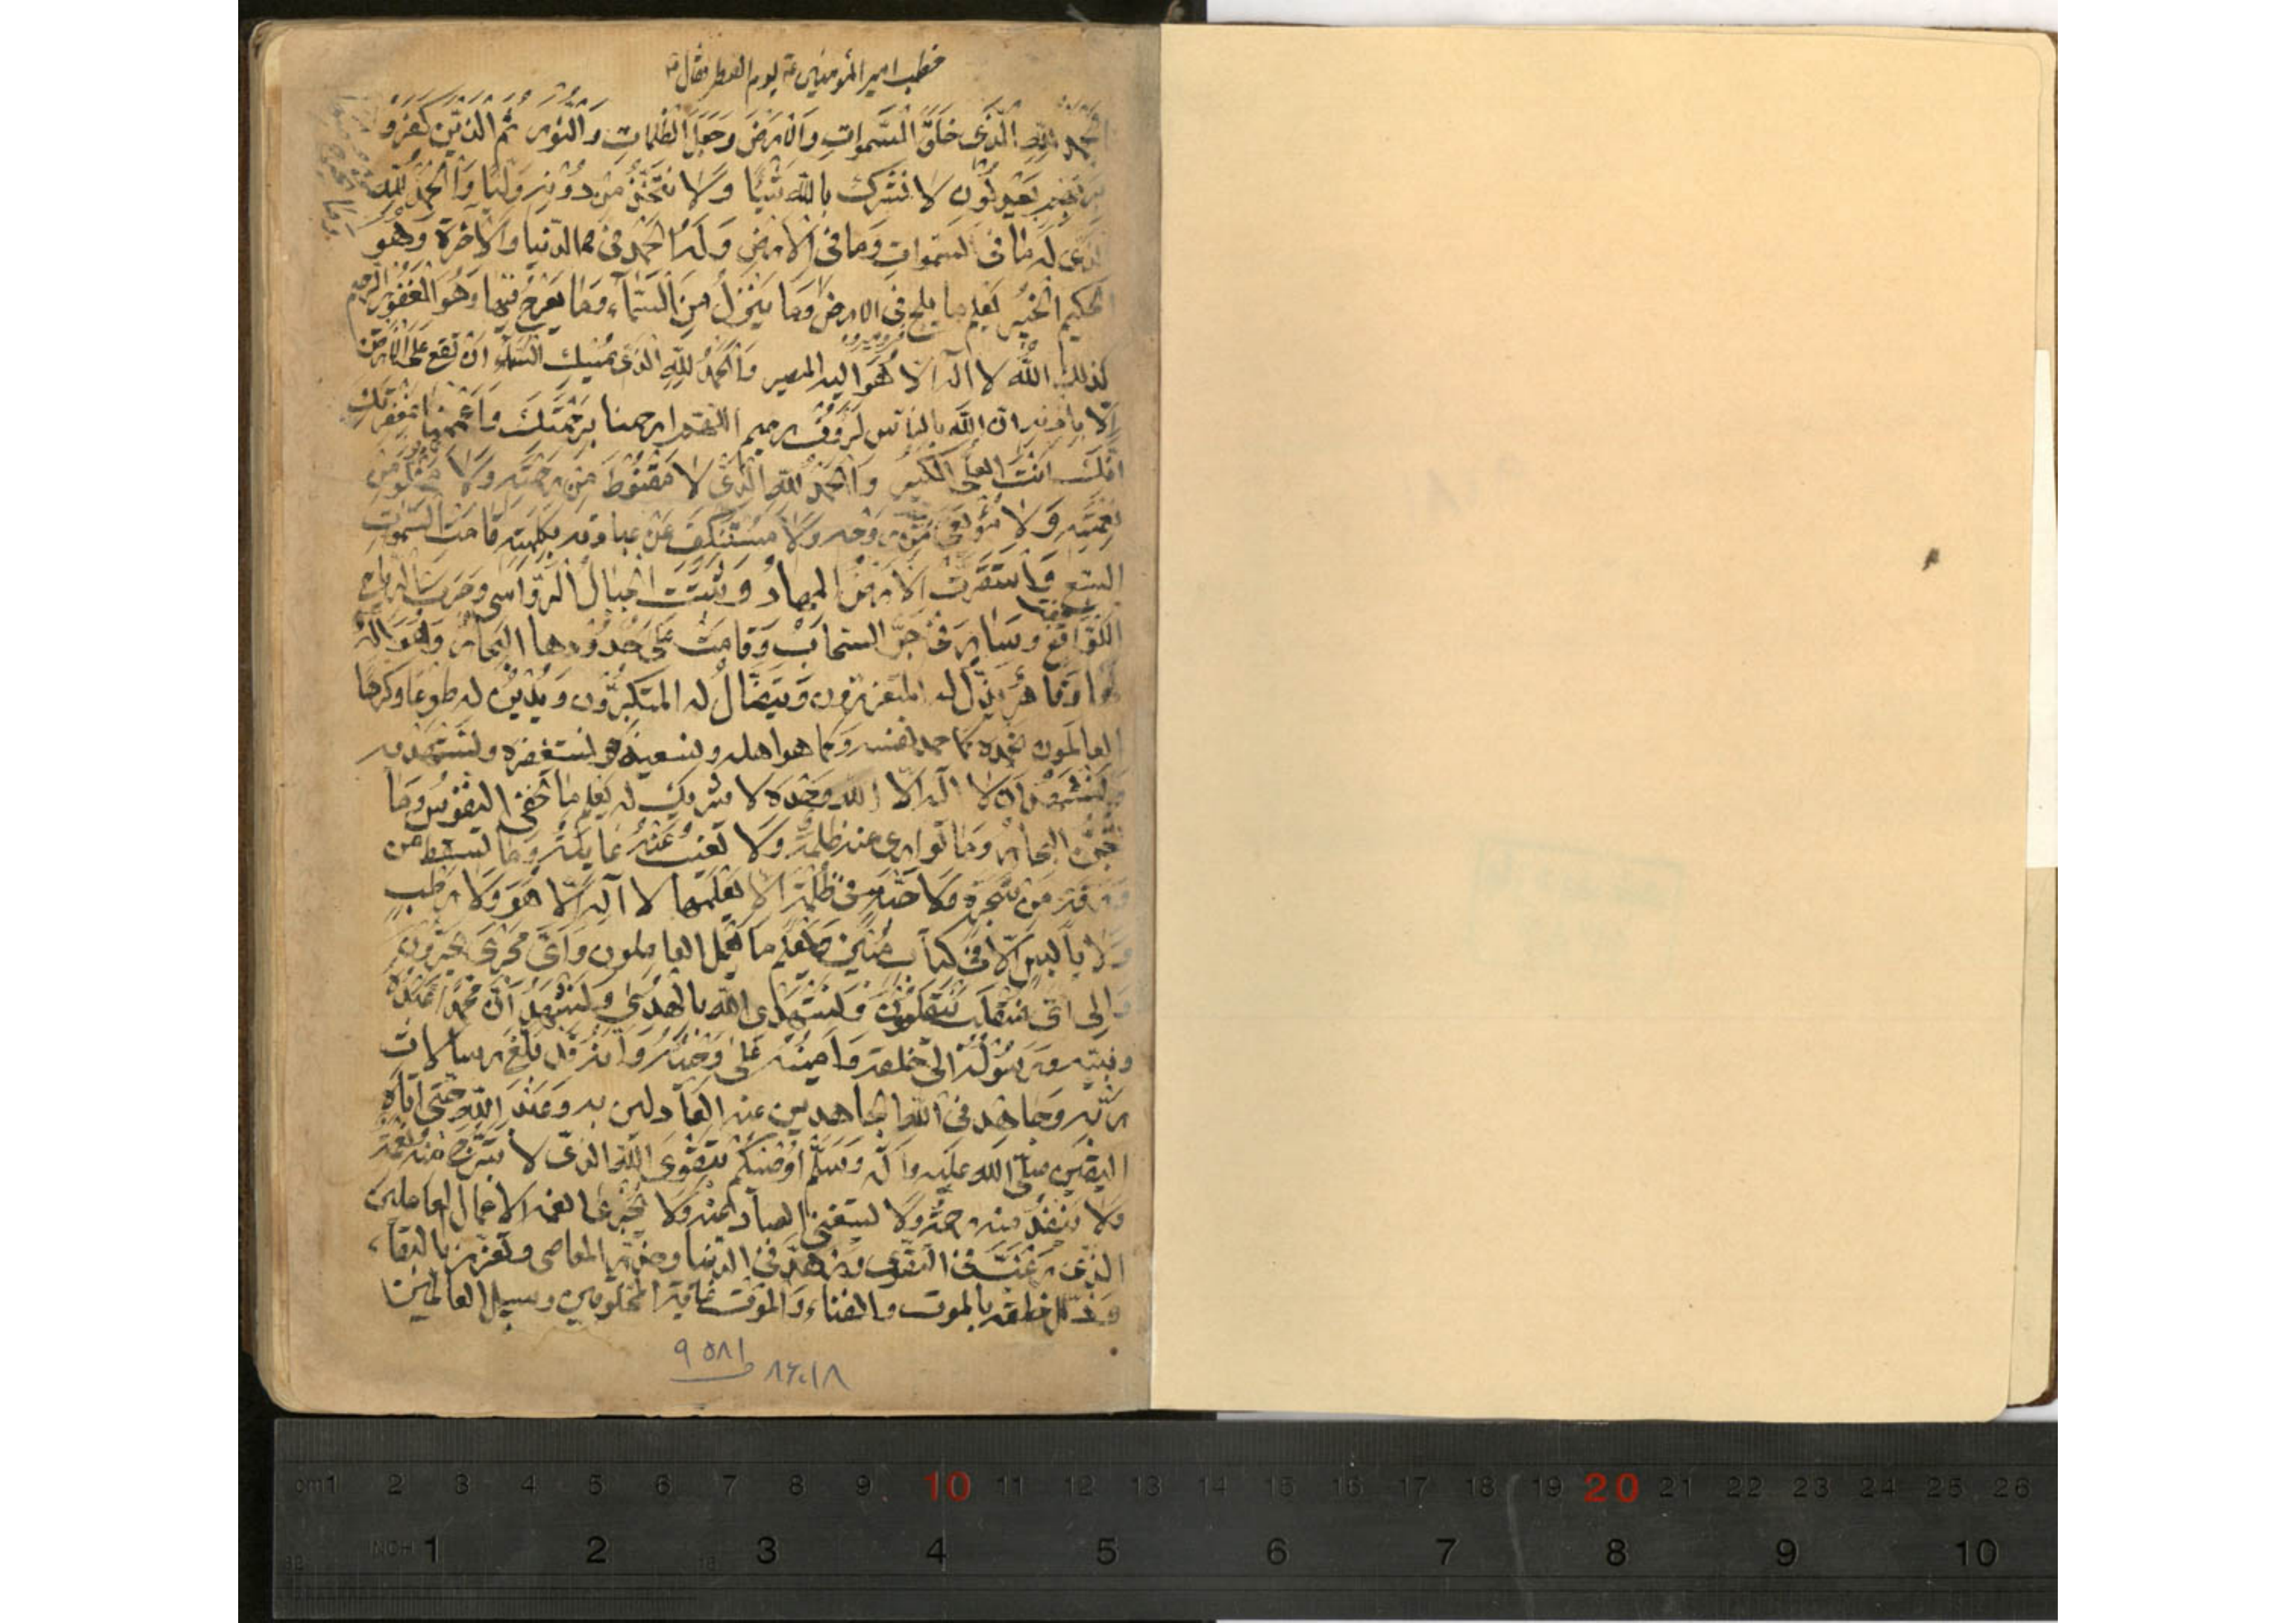 خطب امير المؤمنين ع يوم الفطر فقال
الحمد لله الَّذى خلق السَّموات والارض وجعل الظلمات والنّور ثم الذين كفرو
بربهم يعدلون لا نشرك بالله شيئا ولا نتخذ من دونه وليا والحمد لله
الذى له ما فى السموات وما فى الارض وله الحمد فى الدنيا والاخرة وهو
الحكيم الخبير يعلم ما يلج فى الارض وما ينزل من السّماء وما يعرج فيها وهو الغفور الرحيم
كذلك الله لا اله الا هو اليه المصير والحمد لله الذى يمسك السماء ان تقع على الارض
الا باذنه ان الله بالناس لرؤف رحيم اللهم ارحمنا برحمتك واعممنا بمغفرتك
انك انت العلى الكبير والحمد لله الذى لا مقنوط من رحمته ولا من
نعمته ولا روحه ولا مستنكف عن عبادته بكلمته قامت السموات
السبع واستقرت الارض المهاد وثبتت الجبال الرواسى وجرت الرياح
اللواقح وسار فى جو السحاب وقامت على حدودها البحار وهو اله
لها وقاهر يذل له المتعززون ويتضأل له المتكبرون ويدين له طوعا وكرها
العالمون نحمده كما حمد نفسه وكما هو اهله ونستعينه ونستغفره ونستهديه
ونشهد ان لا اله الا الله وحده لا شريك له يعلم ما تخفى النفوس وما
تجن البحار وما توارى عنه ظلمة ولا تغيب عنه غايبة وما تسقط من
ورقة من شجرة ولا حبة فى ظلمة الا يعلمها لا اله الا هو ولا رطب
ولا يابس الا فى كتاب مبين ويعلم ما يعمل العاملون واى مجرى يجرون
والى اى منقلب ينقلبون ونستهدى الله بالهدى ونشهد ان محمدا عبده
ونبيه ورسوله الى خلقه وامينه على وحيه وانه قد بلغ رسالات
ربه وجاهد فى الله الجاهدين عنه العادلين به وعبد الله حتى اتاه
اليقين صلى الله عليه واله وسلم اوصيكم بتقوى الله الذى لا تبرح منه نعمة
ولا تنفد منه رحمة ولا يستغنى العباد عنه ولا يجزى انعمه الاعمال العاملين
الذى رغب فى التقوى وزهد فى الدنيا وحذر المعاصى وتعزز بالبقاء
وذلل خلقه بالموت والفناء والموت غاية المخلوقين وسبيل العالمين
٩٥٨١ ٨٢٠١٨
cm1 2 3 4 5 6 7 8 9 10 11 12 13 14 15 16 17 18 19 20 21 22 23 24 25 26
INCH 1 2 3 4 5 6 7 8 9 10